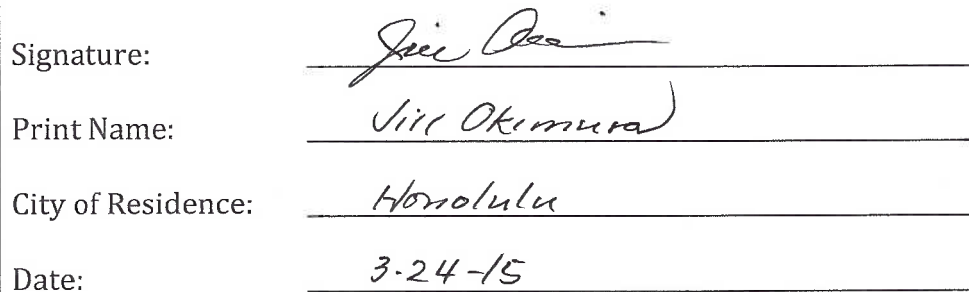 Signature:
Print Name: Jill Okimura
City of Residence: Honolulu
Date: 3-24-15